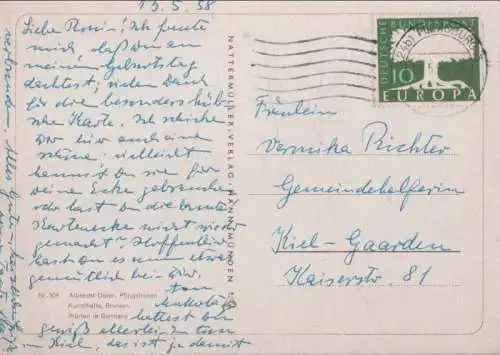 13.5.58
Liebe Roni! Ich freute
mich daß du an
meinem Geburtstag
dachtest, vielen Dank
für die besonders hüb-
sche Karte. Ich schicke
Dir hier auch eine
schöne, vielleicht
kannst Du sie für
Deine Ecke gebrauchen
oder hast Du die bunte
Kartenecke nicht mehr
gemacht? Hoffentlich
hast Du es nun etwas
gemütlich bei Dir.
hattest Du
gewiß allerlei zu tun
in Kiel, das ist ja damit
verbunden. Alles Gute
NATTERMÜLLER-VERLAG HANN.MÜNDEN
Nr. 504 Albrecht Dürer, Pfingstrosen
Kunsthalle, Bremen
Printed in Germany
DEUTSCHE BUNDESPOST
10
EUROPA
Fräulein
Veronika Richter
Gemeindehelferin
Kiel-Gaarden
Kaiserstr. 81